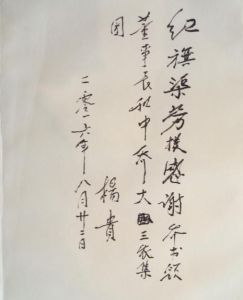 纪旗渠劳模感谢乔书领
董事长和中乔大三农集
团
杨贵
二零一六年八月廿二日